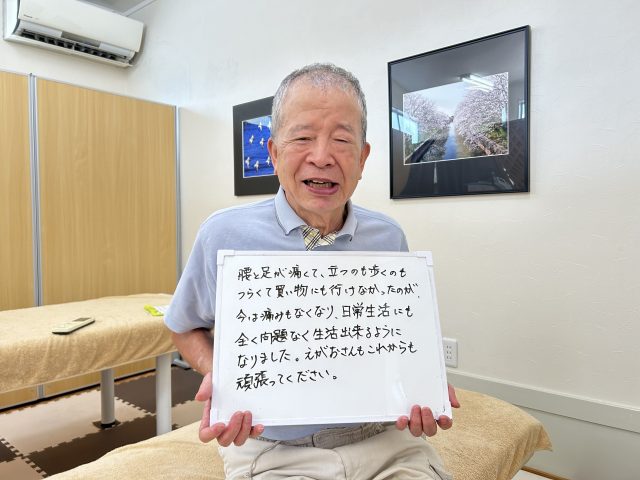 腰と足が痛くて、立つのも歩くのも
つらくて買い物にも行けなかったのが、
今は痛みもなくなり、日常生活にも
全く問題なく生活出来るように
なりました。えがおさんもこれからも
頑張ってください。